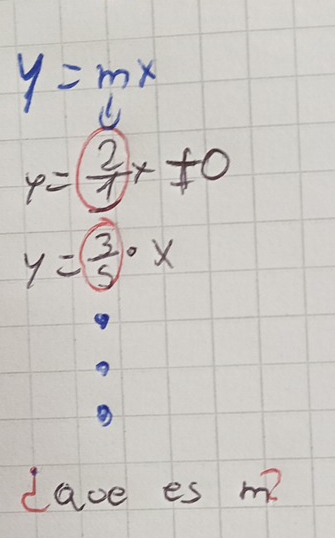 y = mx
↓
y = 2/1 x + 0
y = 3/5 · x
¿que es m?